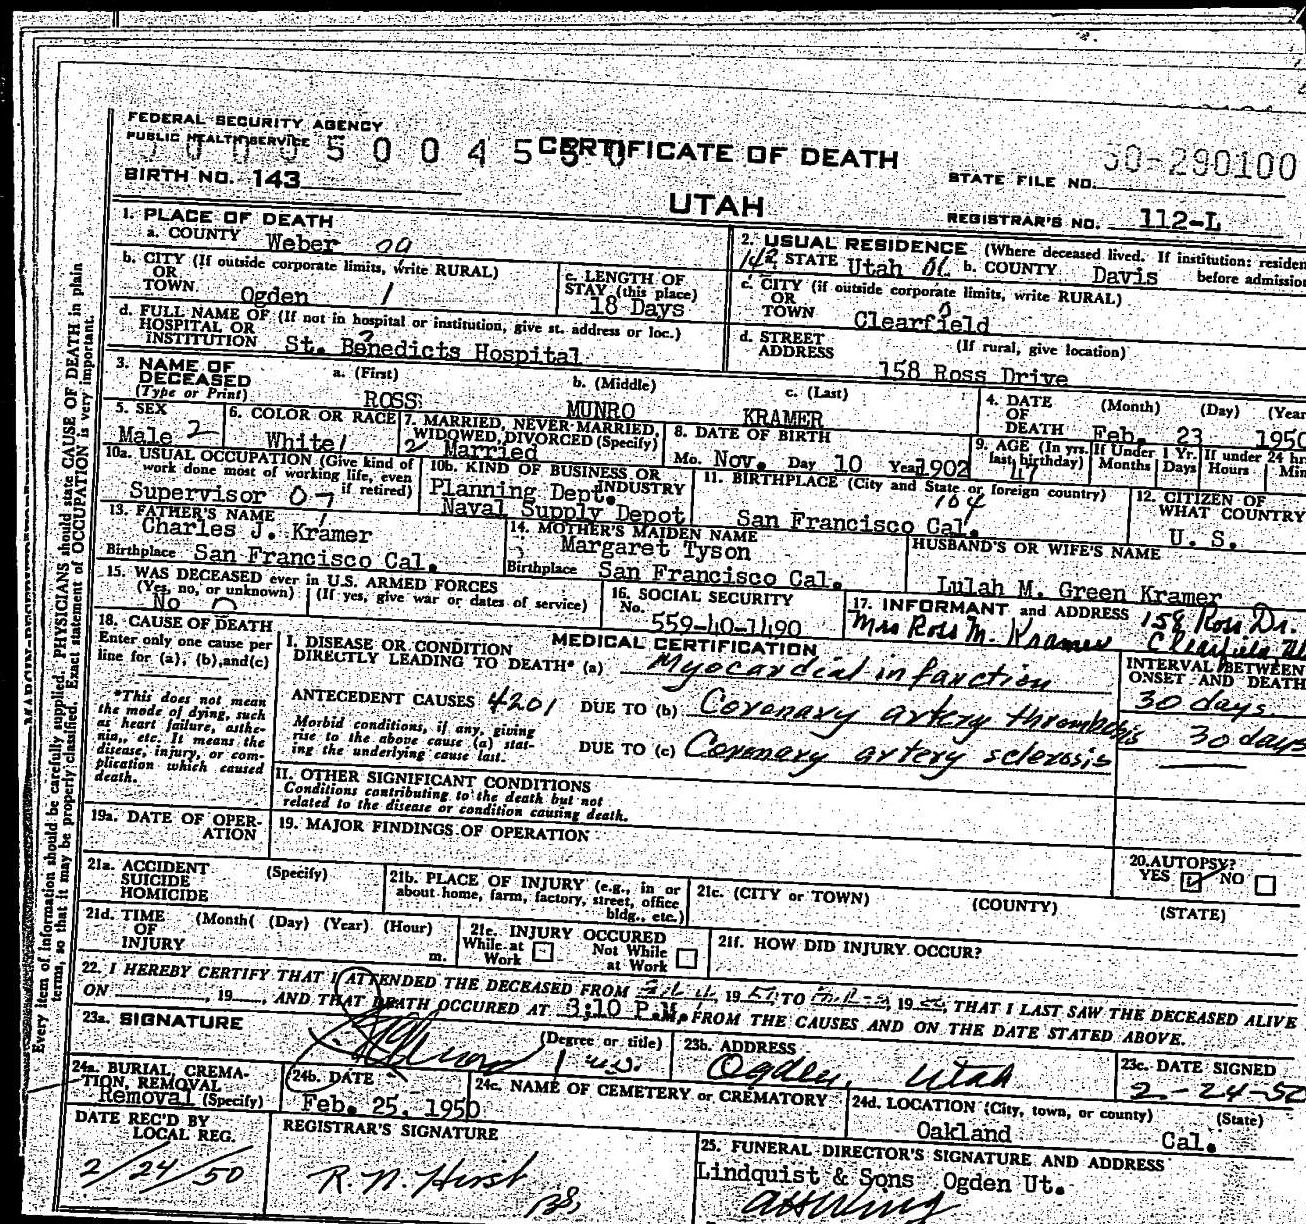 FEDERAL SECURITY AGENCY
PUBLIC HEALTH SERVICE
CERTIFICATE OF DEATH
UTAH
BIRTH NO. 143
STATE FILE NO. 50-290100
REGISTRAR'S NO. 112-L
1. PLACE OF DEATH
a. COUNTY Weber
b. CITY (If outside corporate limits, write RURAL)
OR
TOWN. Ogden 1
c. LENGTH OF
STAY (this place)
18 Days
d. FULL NAME OF (If not in hospital or institution, give st. address or loc.)
HOSPITAL OR
INSTITUTION St. Benedicts Hospital
2. USUAL RESIDENCE (Where deceased lived. If institution: residen
a. STATE Utah b. COUNTY Davis before admission
c. CITY (if outside corporate limits, write RURAL)
OR
TOWN Clearfield
d. STREET (If rural, give location)
ADDRESS
158 Ross Drive
3. NAME OF
DECEASED
(Type or Print)
a. (First) b. (Middle) c. (Last)
ROSS MUNRO KRAMER
4. DATE (Month) (Day) (Year
OF
DEATH Feb. 23 1950
5. SEX
Male 2
6. COLOR OR RACE
White
7. MARRIED, NEVER MARRIED,
WIDOWED, DIVORCED (Specify)
2 Married
8. DATE OF BIRTH
Mo. Nov. Day 10 Year 1902
9. AGE (In yrs. last birthday) 47
If Under 1 Yr. Months Days
If under 24 hr Hours Min
10a. USUAL OCCUPATION (Give kind of
work done most of working life, even
if retired)
Supervisor
10b. KIND OF BUSINESS OR
INDUSTRY
Planning Dept.
Naval Supply Depot
11. BIRTHPLACE (City and State or foreign country)
104
San Francisco Cal.
12. CITIZEN OF
WHAT COUNTRY
U. S.
13. FATHER'S NAME
Charles J. Kramer
Birthplace San Francisco Cal.
14. MOTHER'S MAIDEN NAME
Margaret Tyson
Birthplace San Francisco Cal.
HUSBAND'S OR WIFE'S NAME
Lulah M. Green Kramer
15. WAS DECEASED ever in U.S. ARMED FORCES
(Yes, no, or unknown) (If yes, give war or dates of service)
No 0
16. SOCIAL SECURITY
No. 559-40-1490
17. INFORMANT and ADDRESS 158 Ross Dr.
Mrs Ross M. Kramer Clearfield, Ut
18. CAUSE OF DEATH
Enter only one cause per
line for (a), (b), and (c)
*This does not mean
the mode of dying, such
as heart failure, asthe-
nia, etc. It means the
disease, injury, or com-
plication which caused
death.
MEDICAL CERTIFICATION
I. DISEASE OR CONDITION
DIRECTLY LEADING TO DEATH* (a) Myocardial infarction
ANTECEDENT CAUSES 4201 DUE TO (b) Coronary artery thrombosis
Morbid conditions, if any, giving
rise to the above cause (a) stat-
ing the underlying cause last.
DUE TO (c) Coronary artery sclerosis
INTERVAL BETWEEN
ONSET AND DEATH
30 days
30 days
II. OTHER SIGNIFICANT CONDITIONS
Conditions contributing to the death but not
related to the disease or condition causing death.
19a. DATE OF OPER-
ATION
19. MAJOR FINDINGS OF OPERATION
20. AUTOPSY?
YES NO
21a. ACCIDENT (Specify)
SUICIDE
HOMICIDE
21b. PLACE OF INJURY (e.g., in or
about home, farm, factory, street, office
bldg., etc.)
21c. (CITY or TOWN) (COUNTY) (STATE)
21d. TIME (Month( (Day) (Year) (Hour)
OF
INJURY m.
21e. INJURY OCCURED
While at Work Not While at Work
21f. HOW DID INJURY OCCUR?
22. I HEREBY CERTIFY THAT I ATTENDED THE DECEASED FROM , 19 TO , 19 , THAT I LAST SAW THE DECEASED ALIVE
ON , 19 , AND THAT DEATH OCCURED AT 3:10 P.M. FROM THE CAUSES AND ON THE DATE STATED ABOVE.
23a. SIGNATURE (Degree or title)
23b. ADDRESS
Ogden, Utah
23c. DATE SIGNED
2-24-50
24a. BURIAL, CREMA-
TION, REMOVAL
Removal (Specify)
24b. DATE
Feb. 25, 1950
24c. NAME OF CEMETERY or CREMATORY
24d. LOCATION (City, town, or county) (State)
Oakland Cal.
DATE REC'D BY
LOCAL REG.
2/24/50
REGISTRAR'S SIGNATURE
R. N. Hirst
25. FUNERAL DIRECTOR'S SIGNATURE AND ADDRESS
Lindquist & Sons Ogden Ut.
Every item of information should be carefully supplied. PHYSICIANS should state CAUSE OF DEATH in plain
terms, so that it may be properly classified. Exact statement of OCCUPATION is very important.